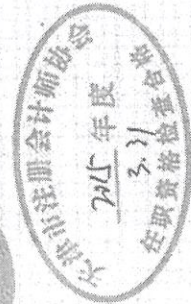 天津市注册会计师协会
2015 年度
3.31
任职资格检查合格